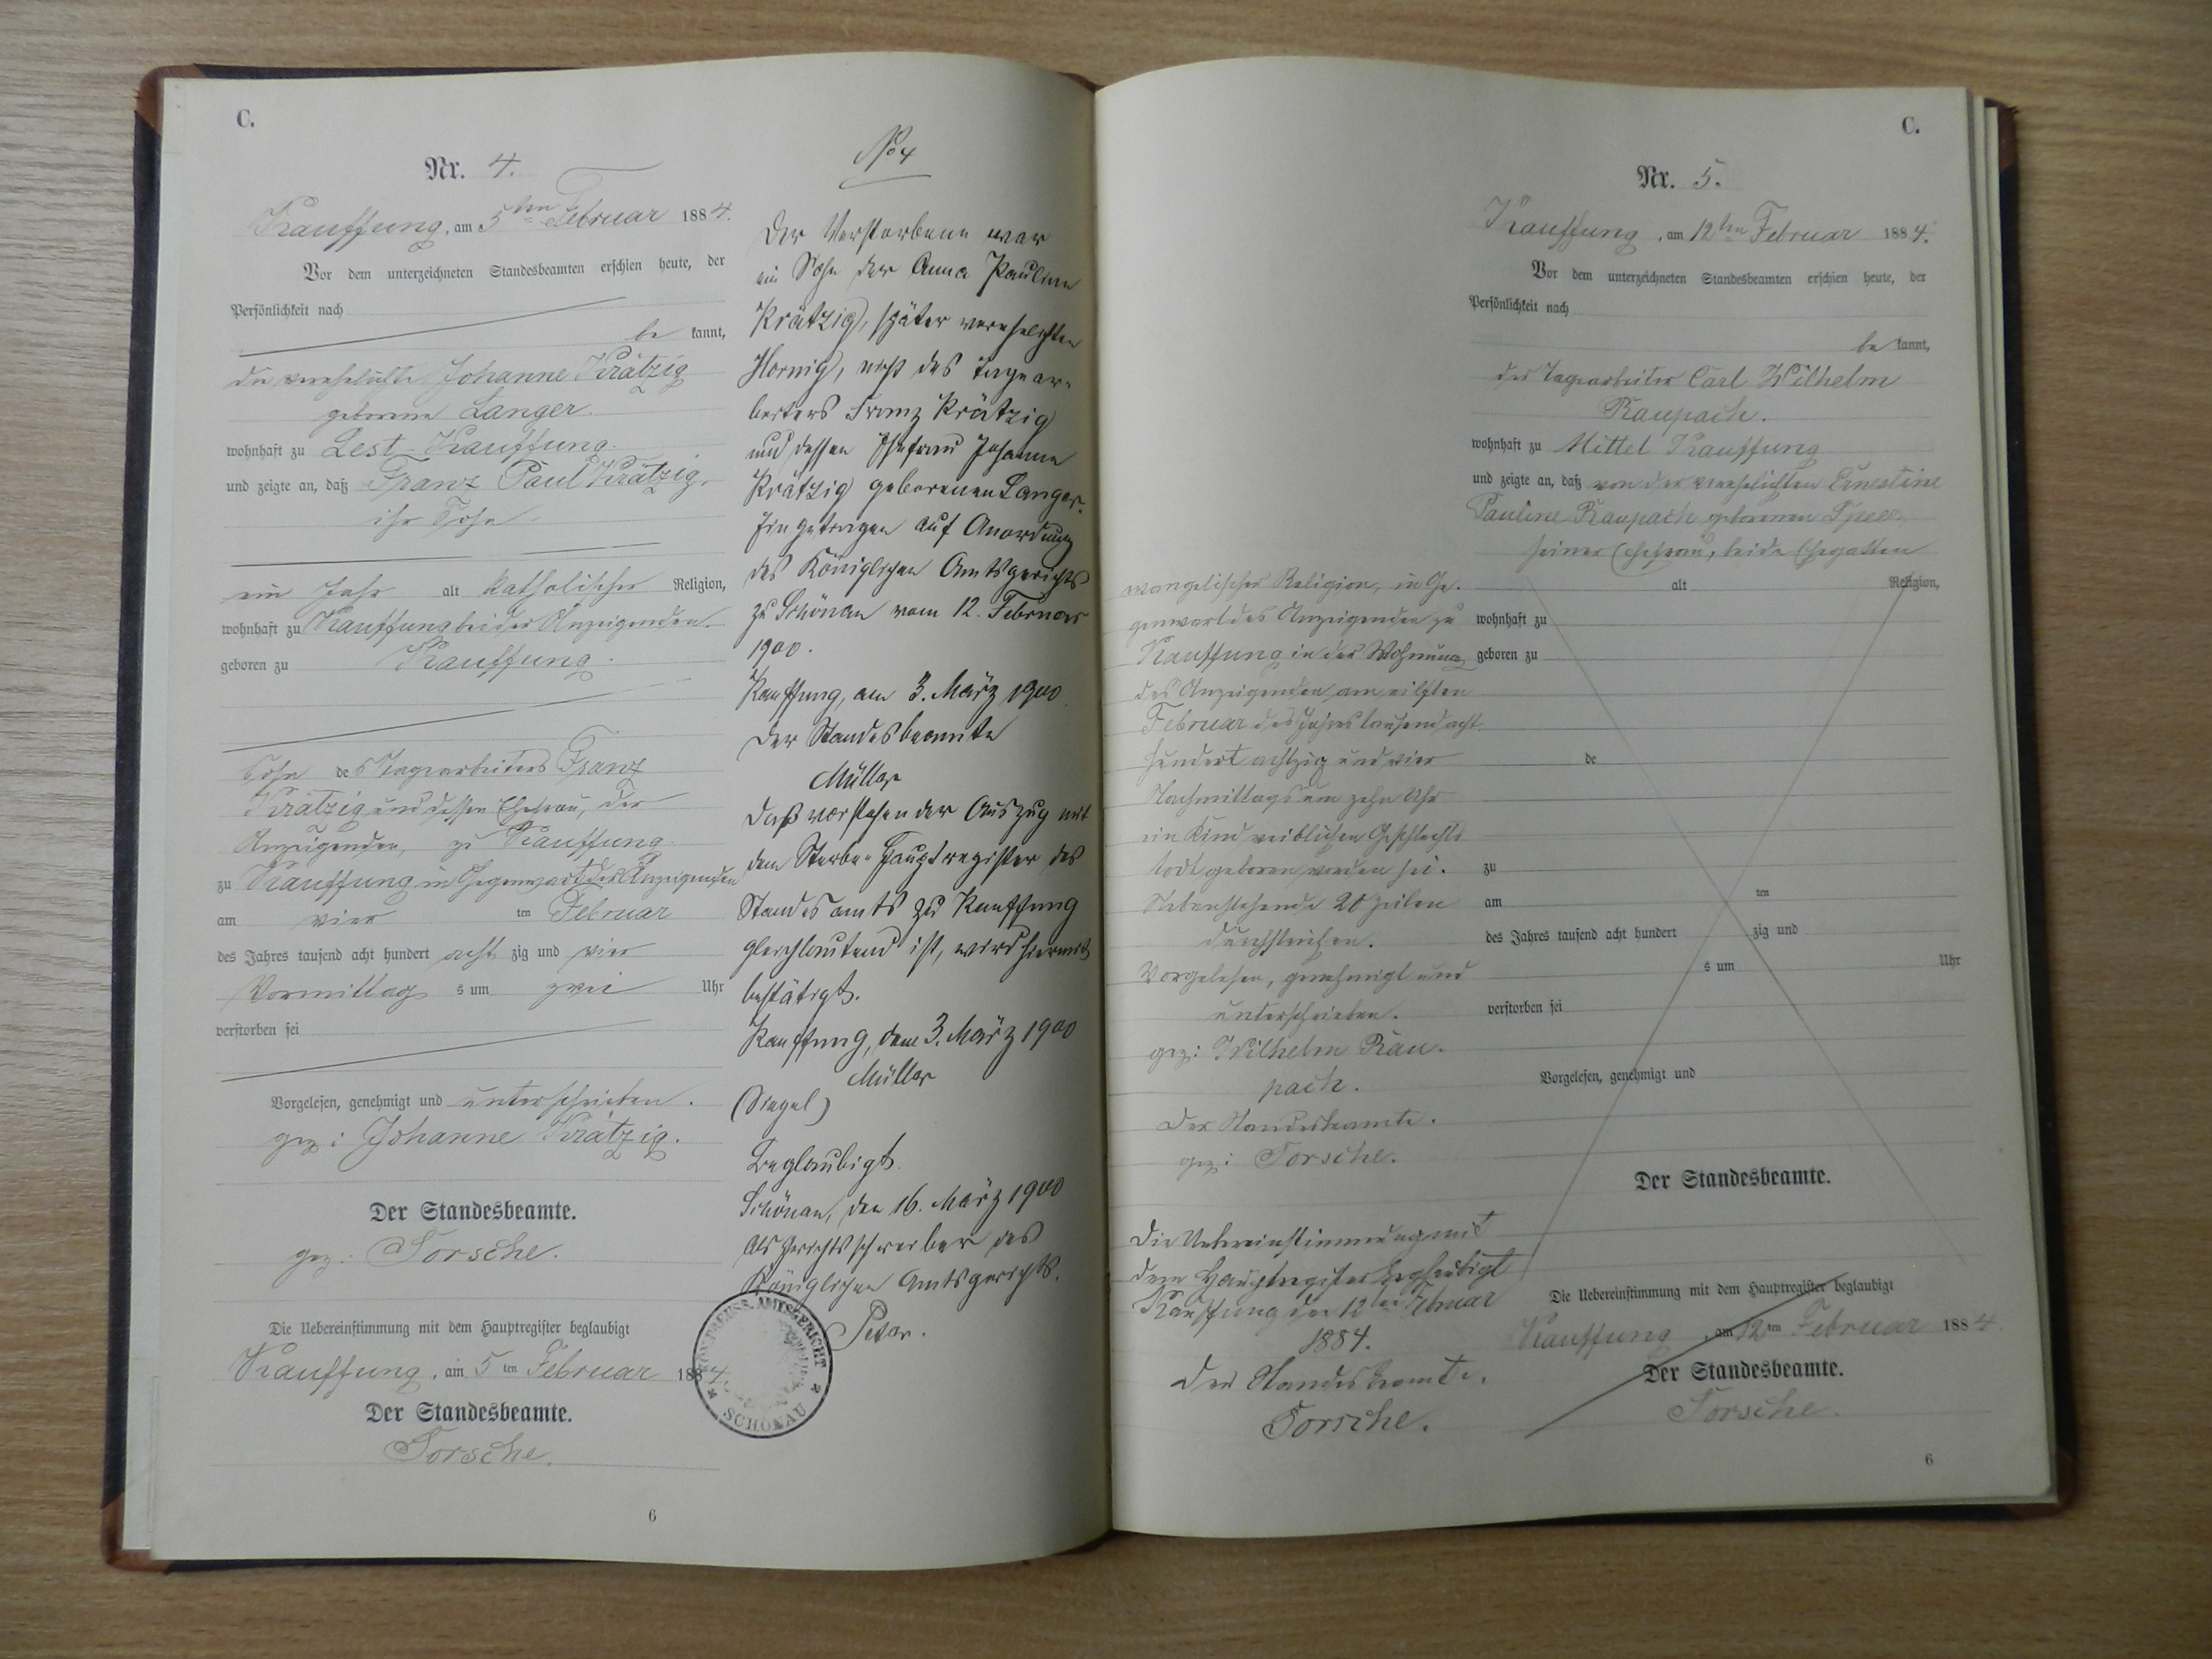 C.
Nr. 4.
Kauffung, am 5ten Februar 1884.
Vor dem unterzeichneten Standesbeamten erschien heute, der
Persönlichkeit nach
be kannt,
die verehelichte Johanne Krätzig
geborene Langer
wohnhaft zu Lest-Kauffung
und zeigte an, daß Franz Paul Krätzig,
ihr Sohn
ein Jahr alt katholischer Religion,
wohnhaft zu Kauffung bei der Anzeigenden
geboren zu Kauffung
Sohn des Tagearbeiters Franz
Krätzig und dessen Ehefrau, der
Anzeigenden, zu Kauffung
zu Kauffung in Gegenwart der Anzeigenden
am vier ten Februar
des Jahres tausend acht hundert acht zig und vier
Vormittag s um zwei Uhr
verstorben sei
Vorgelesen, genehmigt und unterschrieben.
gez: Johanne Krätzig.
Der Standesbeamte.
gez: Torsche.
Die Uebereinstimmung mit dem Hauptregister beglaubigt
Kauffung, am 5 ten Februar 1884.
Der Standesbeamte.
Torsche.
6
No 4
Der Verstorbene war
ein Sohn der Anna Pauline
Krätzig, später verehelichten
Hornig, nicht des Tagear-
beiters Franz Krätzig
und dessen Ehefrau Johanne
Krätzig geborenen Langer.
Eingetragen auf Anordnung
des Königlichen Amtsgerichts
zu Schönau vom 12. Februar
1900.
Kauffung, am 3. März 1900
Der Standesbeamte
Müller
Daß vorstehender Auszug mit
dem Sterbe-Hauptregister des
Standesamts zu Kauffung
gleichlautend ist, wird hiermit
bestätigt.
Kauffung, den 3. März 1900
Müller
(Siegel)
Beglaubigt
Schönau, den 16. März 1900
Als Gerichtsschreiber des
Königlichen Amtsgerichts.
Peter.
KÖN. PREUSS. AMTSGERICHT
SCHÖNAU
C.
Nr. 5.
Kauffung, am 12ten Februar 1884.
Vor dem unterzeichneten Standesbeamten erschien heute, der
Persönlichkeit nach
be kannt,
der Tagearbeiter Carl Wilhelm
Raupach.
wohnhaft zu Mittel Kauffung
und zeigte an, daß von der verehelichten Ernestine
Pauline Raupach geborenen Speer,
seiner Ehefrau, beide Ehegatten
evangelischer Religion, in Ge-
genwart des Anzeigenden zu
Kauffung in der Wohnung
des Anzeigenden am eilften
Februar des Jahres tausend acht
hundert achtzig und vier
Nachmittags um zehn Uhr
ein Kind weiblichen Geschlechts
todt geboren worden sei.
Nebenstehende 20 Zeilen
durchstrichen.
Vorgelesen, genehmigt und
unterschrieben.
gez: Wilhelm Rau-
pach.
Der Standesbeamte.
gez: Torsche.
Die Uebereinstimmung mit
dem Hauptregister beglaubigt
Kauffung den 12ten Februar
1884.
Der Standesbeamte.
Torsche.
alt Religion,
wohnhaft zu
geboren zu
de
zu
am ten
des Jahres tausend acht hundert zig und
s um Uhr
verstorben sei
Vorgelesen, genehmigt und
Der Standesbeamte.
Die Uebereinstimmung mit dem Hauptregister beglaubigt
Kauffung, am 12ten Februar 1884
Der Standesbeamte.
Torsche.
6